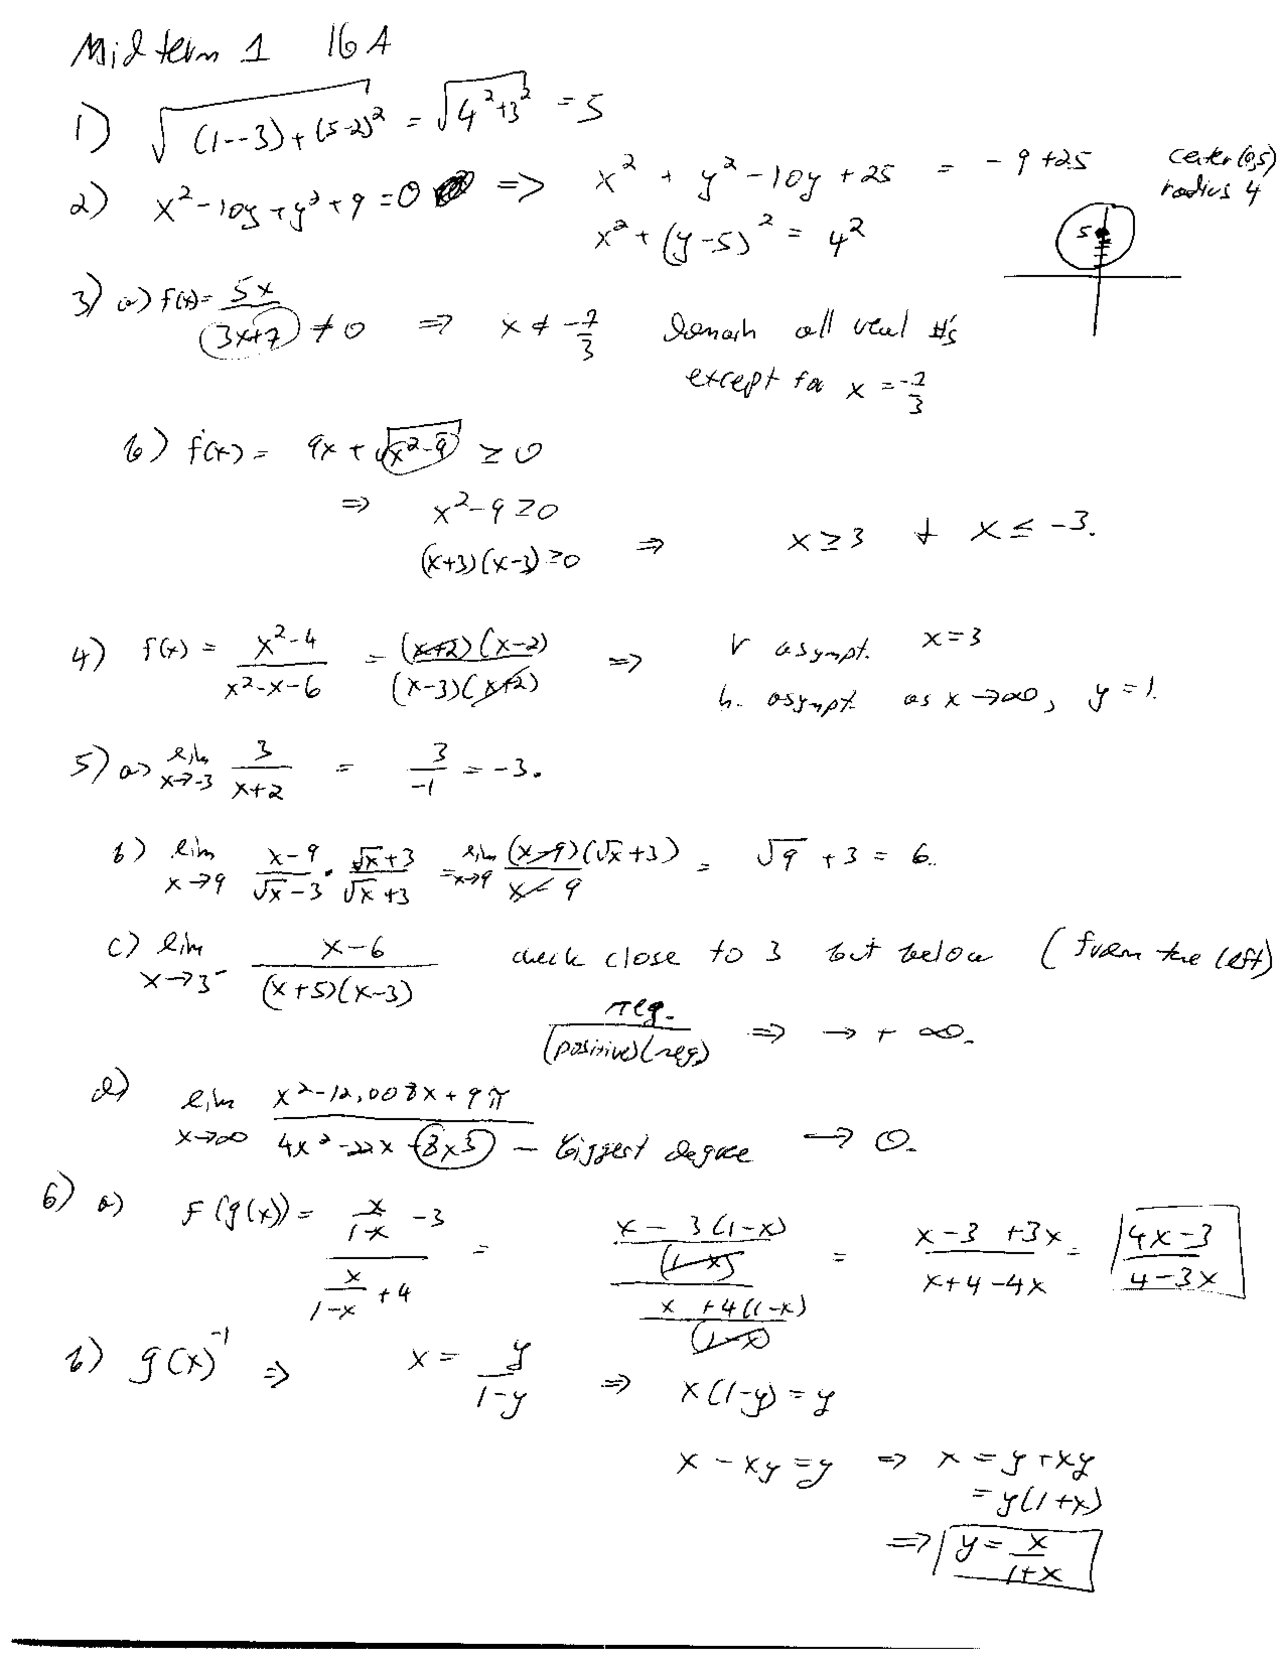 Midterm 1 16A
1) √((1--3)+(5-2)²) = √(4²+3²) = 5
2) x²-10y+y²+9=0 => x² + y²-10y+25 = -9+25 center (0,5) radius 4
x²+(y-5)² = 4² 5
3) a) f(x)= 5x/(3x+7) ≠ 0 => x ≠ -7/3 Domain all real #'s
except for x = -7/3
b) f(x) = 9x + √(x²-9) ≥ 0
=> x²-9≥0
(x+3)(x-3)≥0 => x≥3 + x≤-3.
4) f(x) = (x²-4)/(x²-x-6) = (x+2)(x-2)/((x-3)(x+2)) => V asympt. x=3
h. asympt. as x→∞, y=1.
5) a) lim x→-3 3/(x+2) = 3/-1 = -3.
b) lim x→9 (x-9)/(√x-3) · (√x+3)/(√x+3) = lim x→9 (x-9)(√x+3)/(x-9) = √9 + 3 = 6.
c) lim x→3⁻ (x-6)/((x+5)(x-3)) check close to 3 but below (from the left)
neg./((positive)(neg)) => → + ∞.
d) lim x→∞ (x²-12,008x+9π)/(4x²-22x+8x³) - biggest degree → 0.
6) a) f(g(x)) = (x/(1-x) -3)/(x/(1-x) +4) = ((x-3(1-x))/(1-x))/((x+4(1-x))/(1-x)) = (x-3+3x)/(x+4-4x) = (4x-3)/(4-3x)
b) g(x)⁻¹ => x = y/(1-y) => x(1-y)=y
x-xy=y => x = y+xy
= y(1+x)
=> y = x/(1+x)